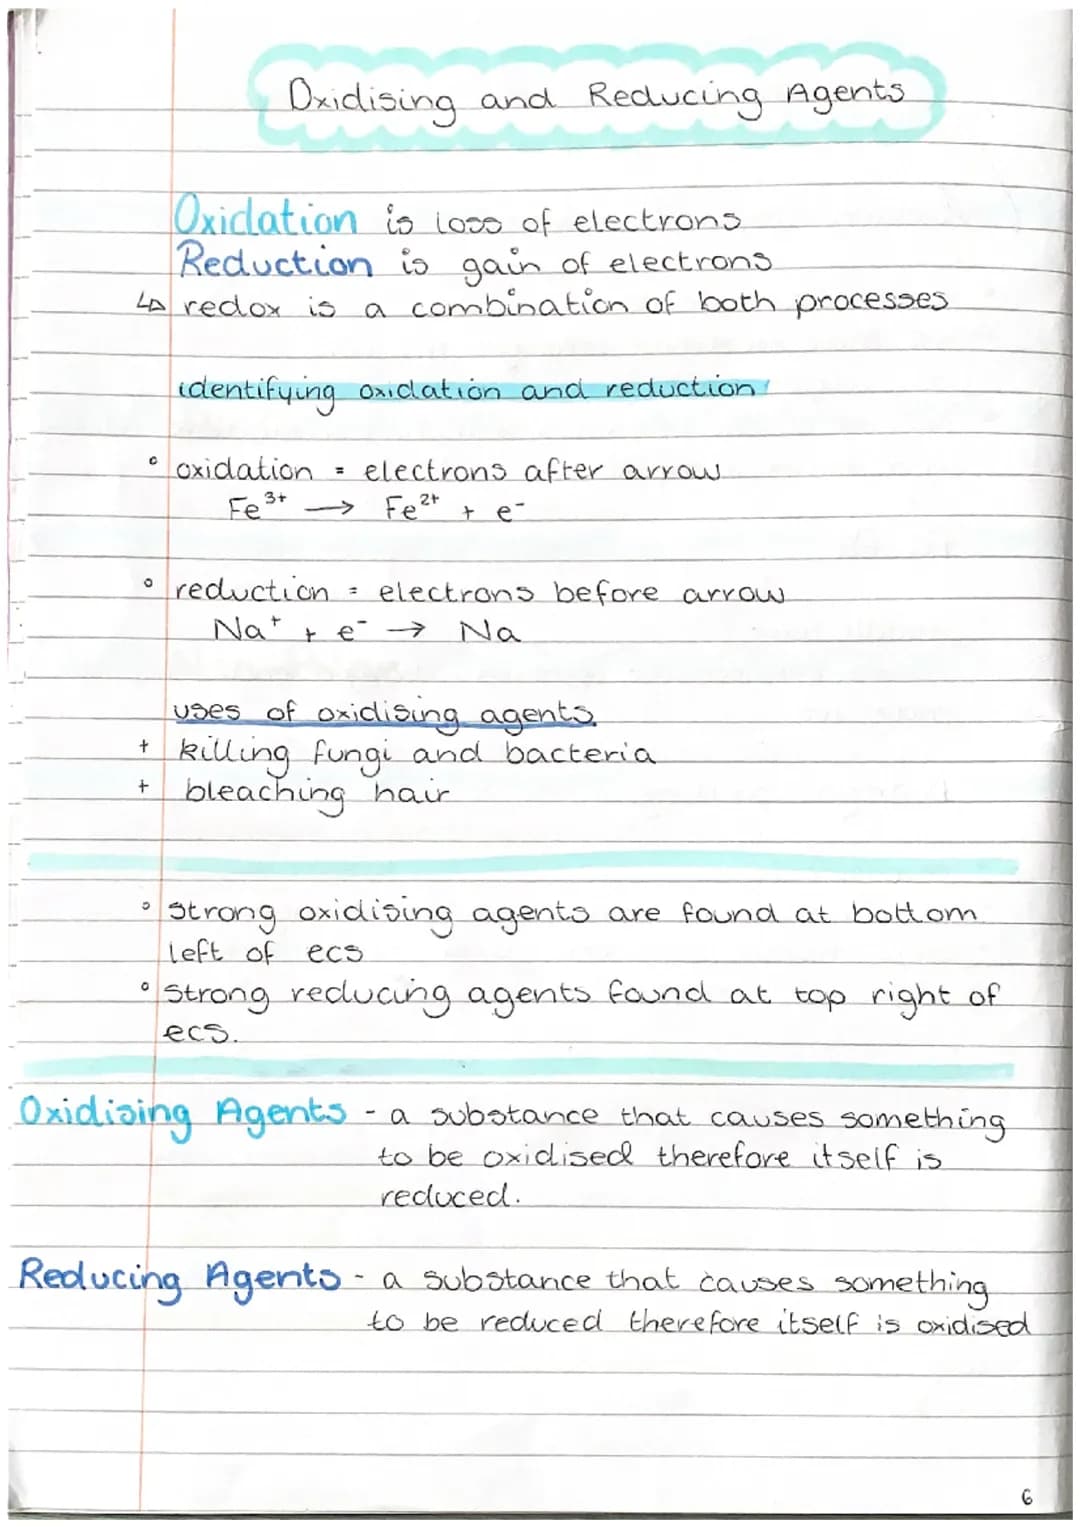 Oxidising and Reducing Agents
Oxidation is loss of electrons
Reduction is gain of electrons
↳ redox is a combination of both processes
identifying oxidation and reduction
° oxidation = electrons after arrow
Fe³⁺ → Fe²⁺ + e⁻
° reduction = electrons before arrow
Na⁺ + e⁻ → Na
uses of oxidising agents.
+ killing fungi and bacteria
+ bleaching hair
° strong oxidising agents are found at bottom
left of ecs
° strong reducing agents found at top right of
ecs.
Oxidising Agents - a substance that causes something
to be oxidised therefore itself is
reduced.
Reducing Agents - a substance that causes something
to be reduced therefore itself is oxidised
6